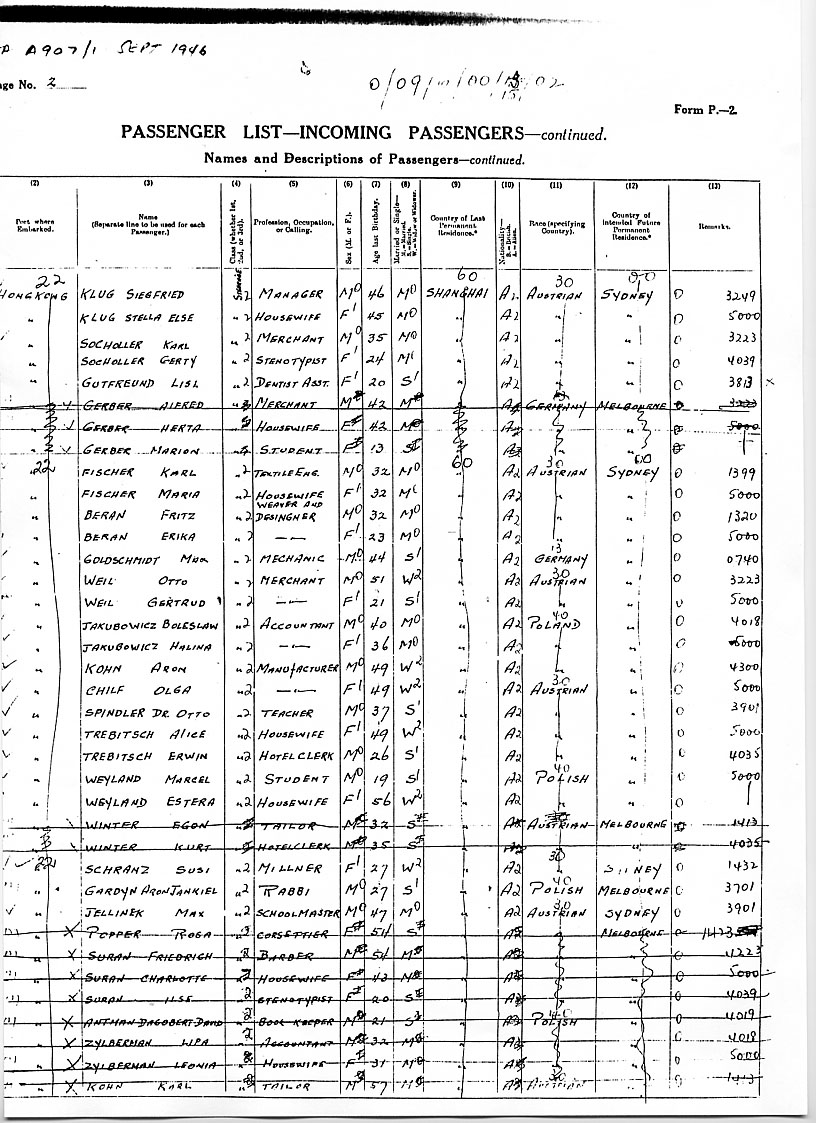 A907/1 SEPT 1946
ge No. 2
Form P.—2
PASSENGER LIST—INCOMING PASSENGERS—continued.
Names and Descriptions of Passengers—continued.
(2) (3) (4) (5) (6) (7) (8) (9) (10) (11) (12) (13)
Port where Embarked. Name (Separate line to be used for each Passenger.) Class (whether 1st, 2nd, or 3rd). Profession, Occupation, or Calling. Sex (M. or F.). Age last Birthday. Married or Single— M.=Married. S.=Single. W.=Widow or Widower. Country of Last Permanent Residence.* Nationality— B.=British. A.=Alien. Race (specifying Country). Country of Intended Future Permanent Residence.* Remarks.
22 60 30
HONGKONG KLUG SIEGFRIED 2 MANAGER M0 46 M0 SHANGHAI A2 AUSTRIAN SYDNEY 0 3249
" KLUG STELLA ELSE " 2 HOUSEWIFE F1 45 M0 A2 " 0 5000
" SOCHOLLER KARL " 2 MERCHANT M0 35 M0 A2 " 0 3223
" SOCHOLLER GERTY " 2 STENOTYPIST F1 24 M1 A2 " 0 4039
" GUTFREUND LISL " 2 DENTIST ASST. F1 20 S1 A2 " 0 3813 x
GERBER ALFRED MERCHANT M 42 M A GERMANY MELBOURNE 3223
GERBER HERTA HOUSEWIFE F 42 M A " 5000
GERBER MARION STUDENT F 13 S A "
22 60 30
" FISCHER KARL " 2 TEXTILE ENG. M0 32 M0 A2 AUSTRIAN SYDNEY 0 1399
" FISCHER MARIA " 2 HOUSEWIFE F1 32 M1 A2 " 0 5000
" BERAN FRITZ " 2 WEAVER AND DESINGHER M0 32 M0 A2 " 0 1320
" BERAN ERIKA " 2 —"— F1 23 M0 A2 " 0 5000
" GOLDSCHMIDT MAX " 2 MECHANIC M0 44 S1 A2 13 GERMANY " 0 0740
" WEIL OTTO " 2 MERCHANT M0 51 W2 A2 30 AUSTRIAN " 0 3223
" WEIL GERTRUD " 2 —"— F1 21 S1 A2 " 0 5000
" JAKUBOWICZ BOLESLAW " 2 ACCOUNTANT M0 40 M0 A2 40 POLAND " 0 4018
" JAKUBOWICZ HALINA " 2 —"— F1 36 M0 A2 " 0 5000
" KOHN ARON " 2 MANUFACTURER M0 49 W2 A2 " 0 4300
" CHILF OLGA " 2 —"— F1 49 W2 A2 30 AUSTRIAN " 0 5000
" SPINDLER DR. OTTO " 2 TEACHER M0 37 S1 A2 " 0 3901
" TREBITSCH ALICE " 2 HOUSEWIFE F1 49 W2 A2 " 0 5000
" TREBITSCH ERWIN " 2 HOTEL CLERK M0 26 S1 A2 " 0 4035
" WEYLAND MARCEL " 2 STUDENT M0 19 S1 A2 40 POLISH " 0 5000
" WEYLAND ESTERA " 2 HOUSEWIFE F1 56 W2 A2 " 0
WINTER EGON TAILOR M 32 S A AUSTRIAN MELBOURNE 1413
WINTER KURT HOTEL CLERK M 35 S A 4035
22 SCHRANZ SUSI " 2 MILLNER F1 27 W2 A2 30 " SYDNEY 0 1432
" GARDYN ARON JANKIEL " 2 RABBI M0 27 S1 A2 40 POLISH MELBOURNE 0 3701
JELLINEK MAX " 2 SCHOOL MASTER M0 47 M0 A2 30 AUSTRIAN SYDNEY 0 3901
X POPPER ROSA CORSETTIER F 54 S A MELBOURNE 1423
X SURAN FRIEDRICH BARBER M 54 M A 4223
X SURAN CHARLOTTE 2 HOUSEWIFE F 43 M A 0 5000
X SURAN ILSE 2 STENOTYPIST F 20 S A 0 4039
X ANTMAN DAGOBERT DAVID 2 BOOK KEEPER M 21 S A 40 POLISH 0 4019
X ZYLBERMAN LIPA 2 ACCOUNTANT M 32 M A 0 4018
X ZYLBERMAN LEONIA HOUSEWIFE F 31 M A 0 5000
X KOHN KARL TAILOR M 57 M A 30 AUSTRIAN 0 1413